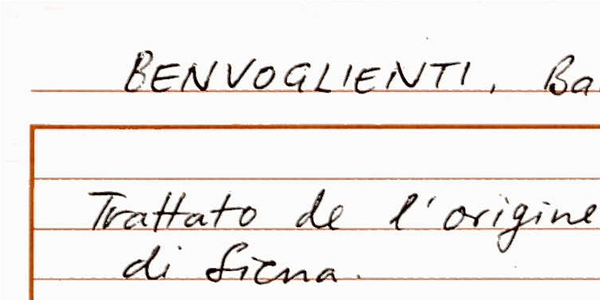 BENVOGLIENTI, Ba
Trattato de l'origine
di Siena.